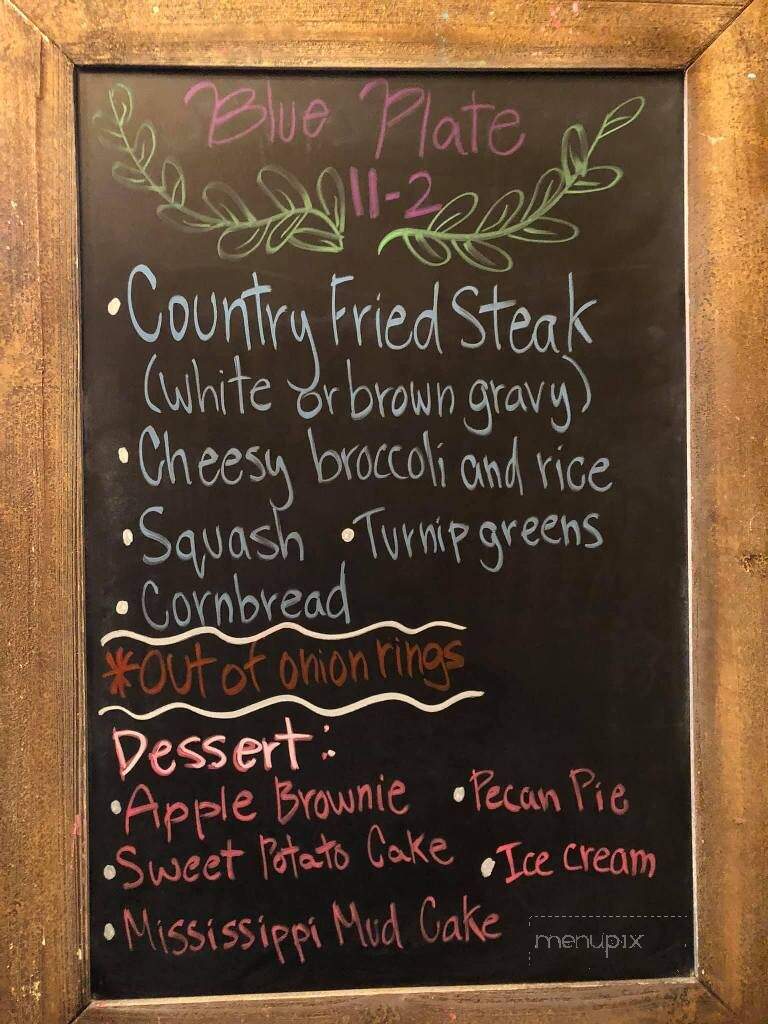 Blue Plate
11-2
• Country Fried Steak
(white or brown gravy)
• Cheesy broccoli and rice
• Squash • Turnip greens
• Cornbread
*Out of onion rings
Dessert:
• Apple Brownie • Pecan Pie
• Sweet Potato Cake • Ice cream
• Mississippi Mud Cake
menupix